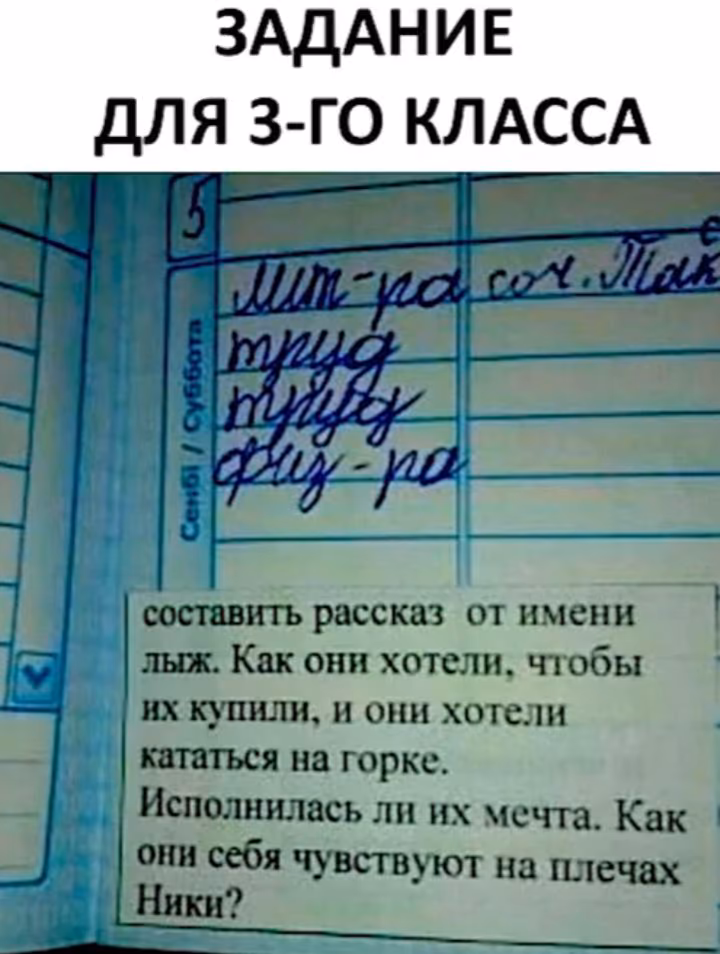 ЗАДАНИЕ
ДЛЯ 3-ГО КЛАССА
5
Сенбі / Суббота
лит-ра соч.
труд
труд
физ-ра
составить рассказ от имени
лыж. Как они хотели, чтобы
их купили, и они хотели
кататься на горке.
Исполнилась ли их мечта. Как
они себя чувствуют на плечах
Ники?